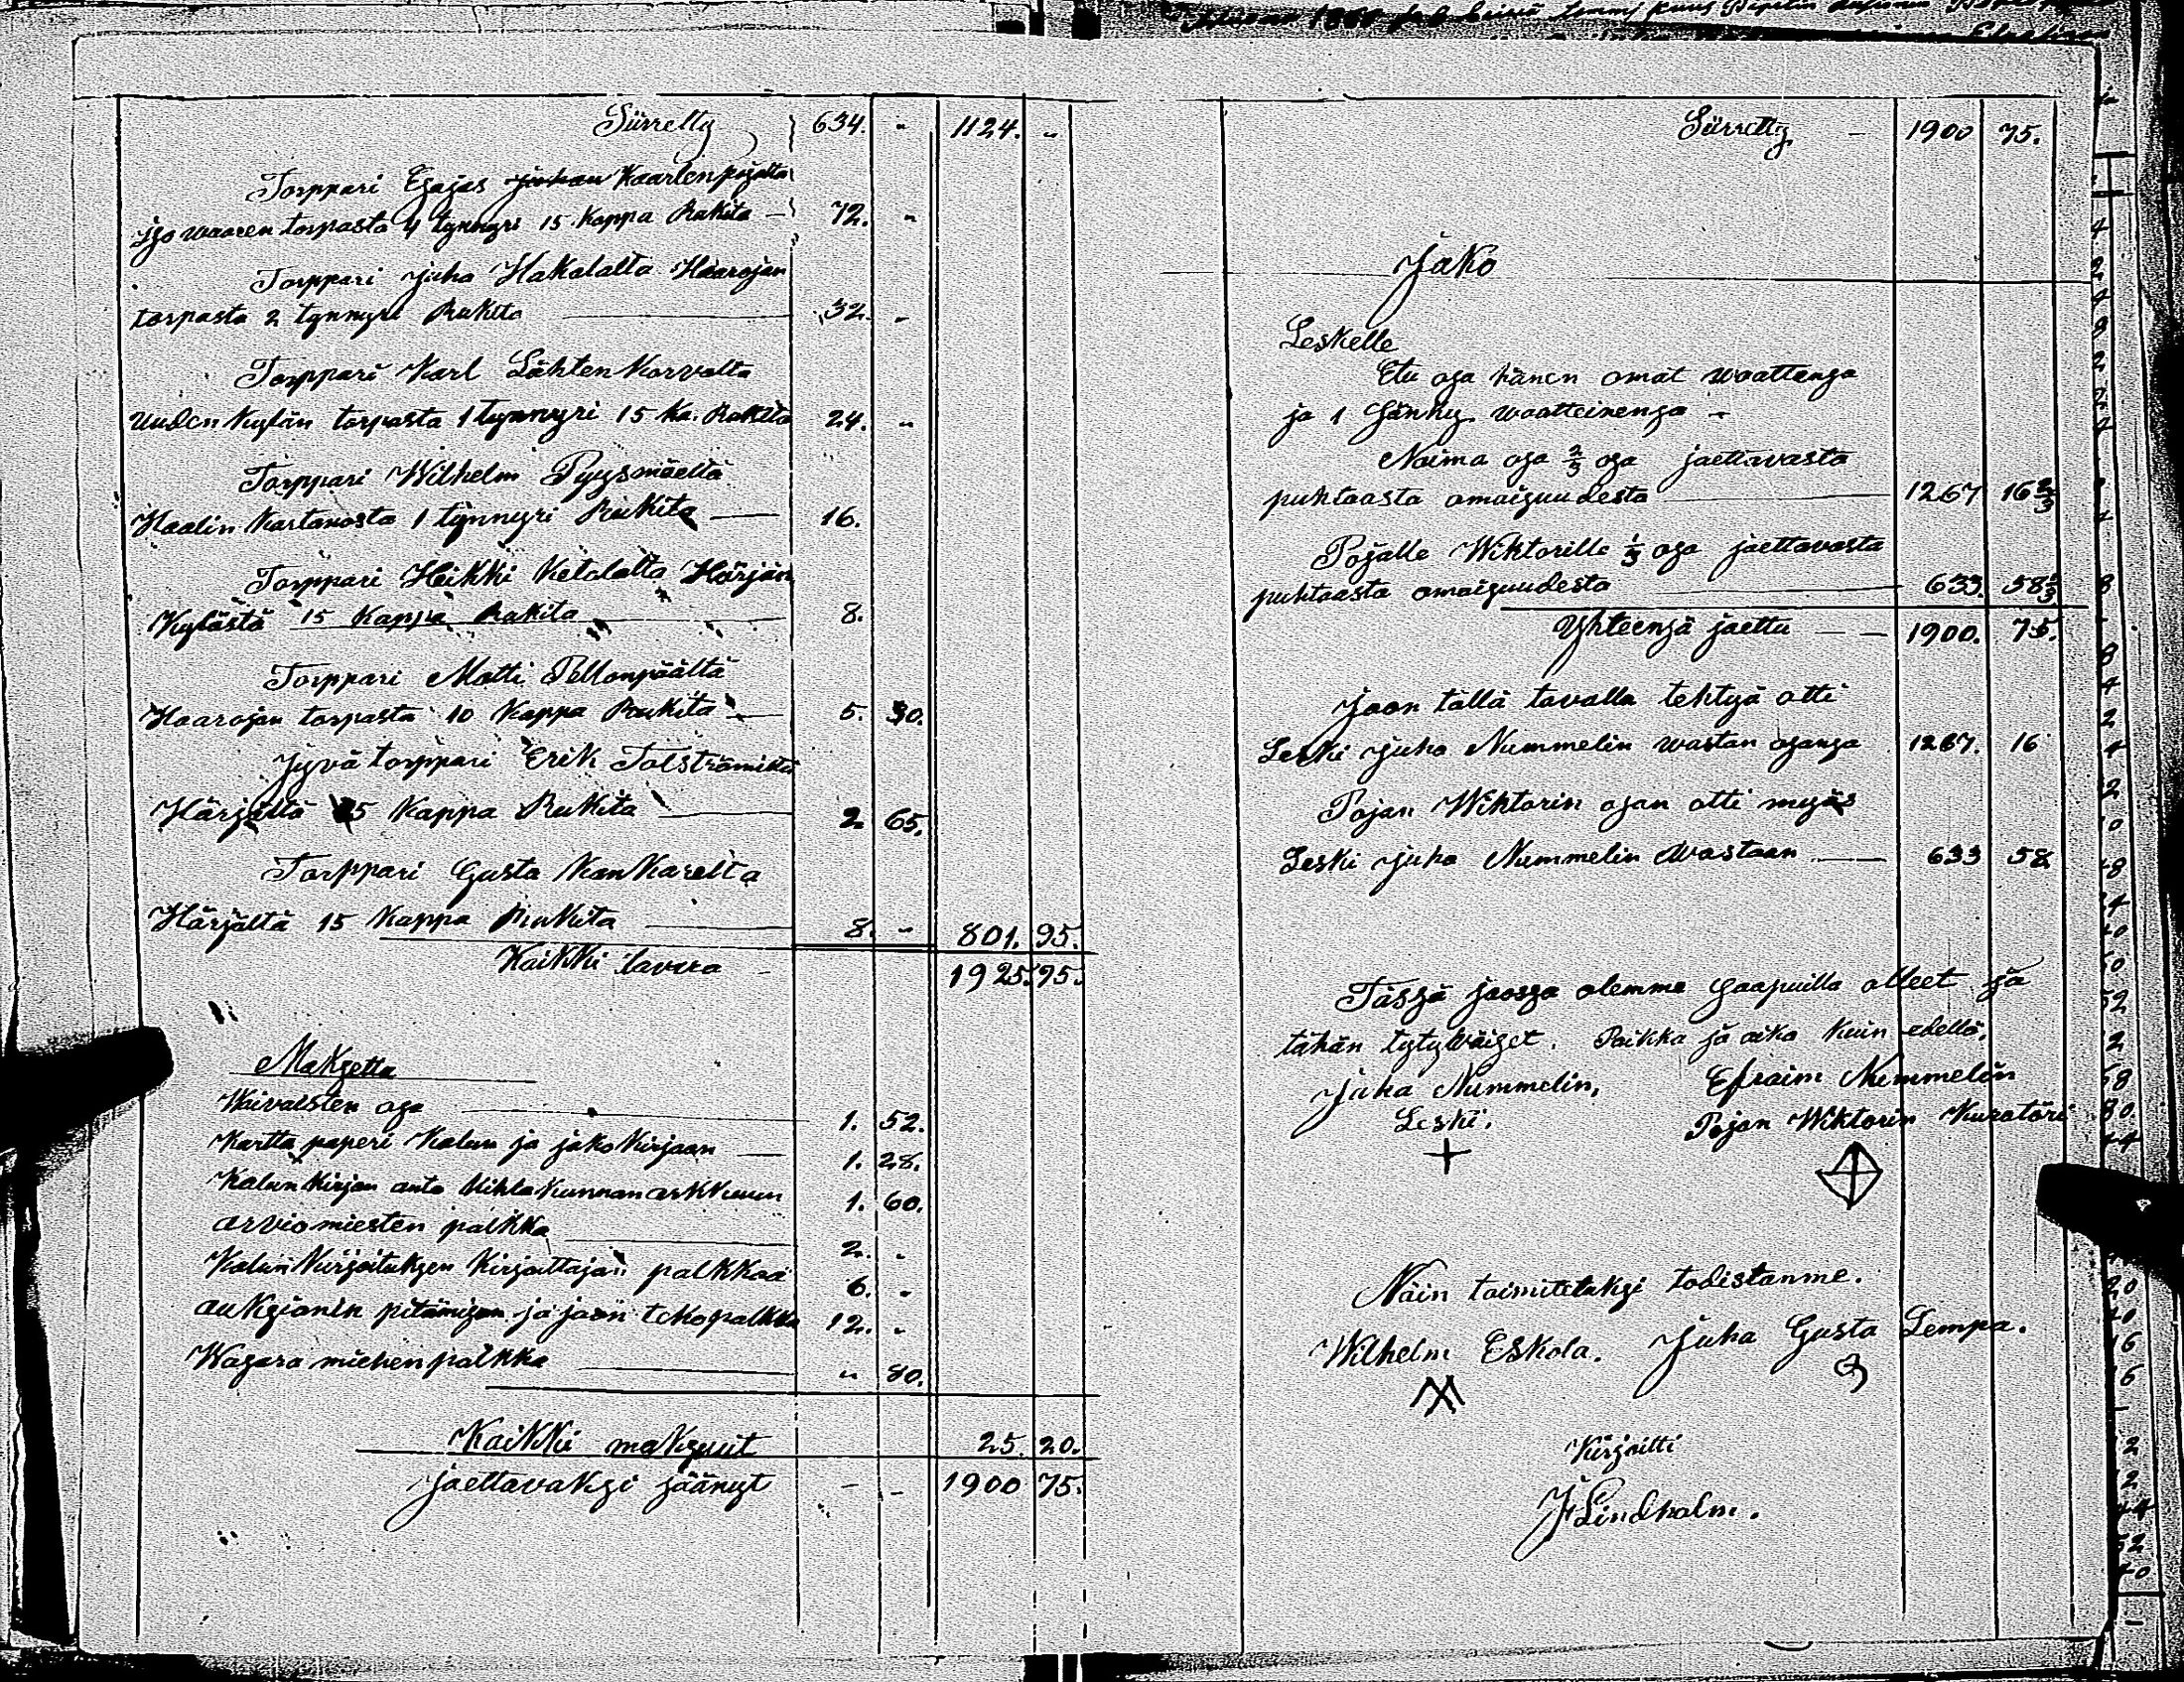 Siirretty 634. " 1124. "
Torppari Esajas Juhan Kaarlenpojalta
Iso waaren torpasta 4 tynnyri 15 Kappa Rukita — 72. "
Torppari Juha Hakalalta Haarojan
torpasta 2 tynnyri Rukita — 32. "
Torppari Karl Lähtenkorvalta
Uuden Kylän torpasta 1 tynnyri 15 Ka. Rukita 24. "
Torppari Wilhelm Pyysmäeltä
Haalin Kartanosta 1 tynnyri Rukita — 16.
Torppari Heikki Ketalalta Härjän
Kylästä 15 Kappa Rukita — 8.
Torppari Matti Pellonpäältä
Haarojan torpasta 10 Kappa Rukita — 5. 30.
Jyvä torppari Erik Tolströmiltä
Härjältä 5 Kappa Rukita — 2 65.
Torppari Gusta Kankarelta
Härjältä 15 Kappa Rukita — 8. " 801. 95.
Kaikki tavara — 1925. 95.
Maksetta
Waivaisten osa — 1. 52.
Kartta paperi Kalun ja jako Kirjaan — 1. 28.
Kalun Kirjan anto Kihlakunnan arkkuun 1. 60.
arviomiesten palkka — 2. "
Kalun Kirjoituksen Kirjoittajan palkkaa 6. "
auksionin pitämisen ja jaon teko palkka 12. "
Wasara miehen palkka — " 80.
Kaikki maksuut 25. 20.
jaettavaksi jäänyt — — 1900 75.
Siirretty — 1900 75.
Jako
Leskelle
Etu osa hänen omat waattensa
ja 1 Sänky waatteinensa "
Naima osa 2/3 osa jaettavasta
puhtaasta omaisuudesta — 1267 16 2/3
Pojalle Wiktorille 1/3 osa jaettavasta
puhtaasta omaisuudesta — 633. 58 1/3
Yhteensä jaettu — — 1900. 75.
Jaon tällä tavalla tehtyä otti
Leski Juha Nummelin wastan osansa 1267. 16
Pojan Wiktorin osan otti myös
Leski Juha Nummelin wastaan — 633 58
Tässä jaossa olemme saapuilla olleet ja
tähän tytywäiset. Paikka ja aika kuin edellä.
Juha Nummelin, Efraim Nummelin
Leski. Pojan Wiktorin Kuratöri
Näin toimitetuksi todistamme.
Wilhelm Eskola. Juha Gusta Lempa.
Kirjoitti
J Lindholm.